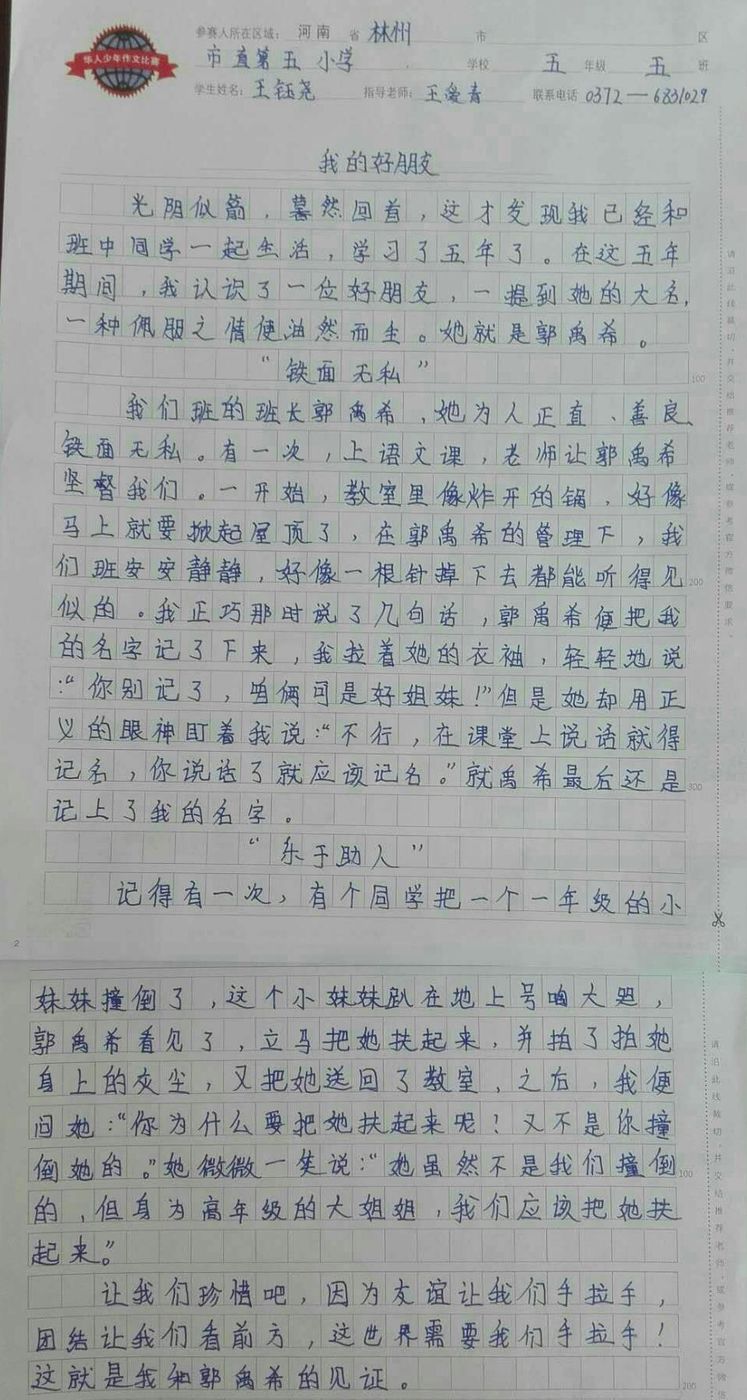 华人少年作文比赛
参赛人所在区域： 河南 省 林州 市 区
市直第五小学 学校 五 年级 五 班
学生姓名：王钰尧 指导老师：王爱青 联系电话 0372—6831029
我的好朋友
光阴似箭，蓦然回首，这才发现我已经和
班中同学一起生活，学习了五年了。在这五年
期间，我认识了一位好朋友，一提到她的大名，
一种佩服之情便油然而生。她就是郭禹希。
“铁面无私”
100
我们班的班长郭禹希，她为人正直、善良、
铁面无私。有一次，上语文课，老师让郭禹希
坚督我们。一开始，教室里像炸开的锅，好像
马上就要掀起屋顶了，在郭禹希的管理下，我
们班安安静静，好像一根针掉下去都能听得见
200
似的。我正巧那时说了几句话，郭禹希便把我
的名字记了下来，我拉着她的衣袖，轻轻地说
：“你别记了，咱俩可是好姐妹！”但是她却用正
义的眼神盯着我说：“不行，在课堂上说话就得
记名，你说话了就应该记名。”就禹希最后还是
300
记上了我的名字。
“乐于助人”
记得有一次，有个同学把一个一年级的小
2
妹妹撞倒了，这个小妹妹趴在地上号啕大哭，
郭禹希看见了，立马把她扶起来，并拍了拍她
身上的灰尘，又把她送回了教室。之后，我便
问她：“你为什么要把她扶起来呢？又不是你撞
倒她的。”她微微一笑说：“她虽然不是我们撞倒
100
的，但身为高年级的大姐姐，我们应该把她扶
起来。”
让我们珍惜吧，因为友谊让我们手拉手，
团结让我们看前方，这世界需要我们手拉手！
这就是我和郭禹希的见证。
200
请沿此线裁切，并交给推荐老师，或参考官方微信要求。
请沿此线裁切，并交给推荐老师，或参考官方微信